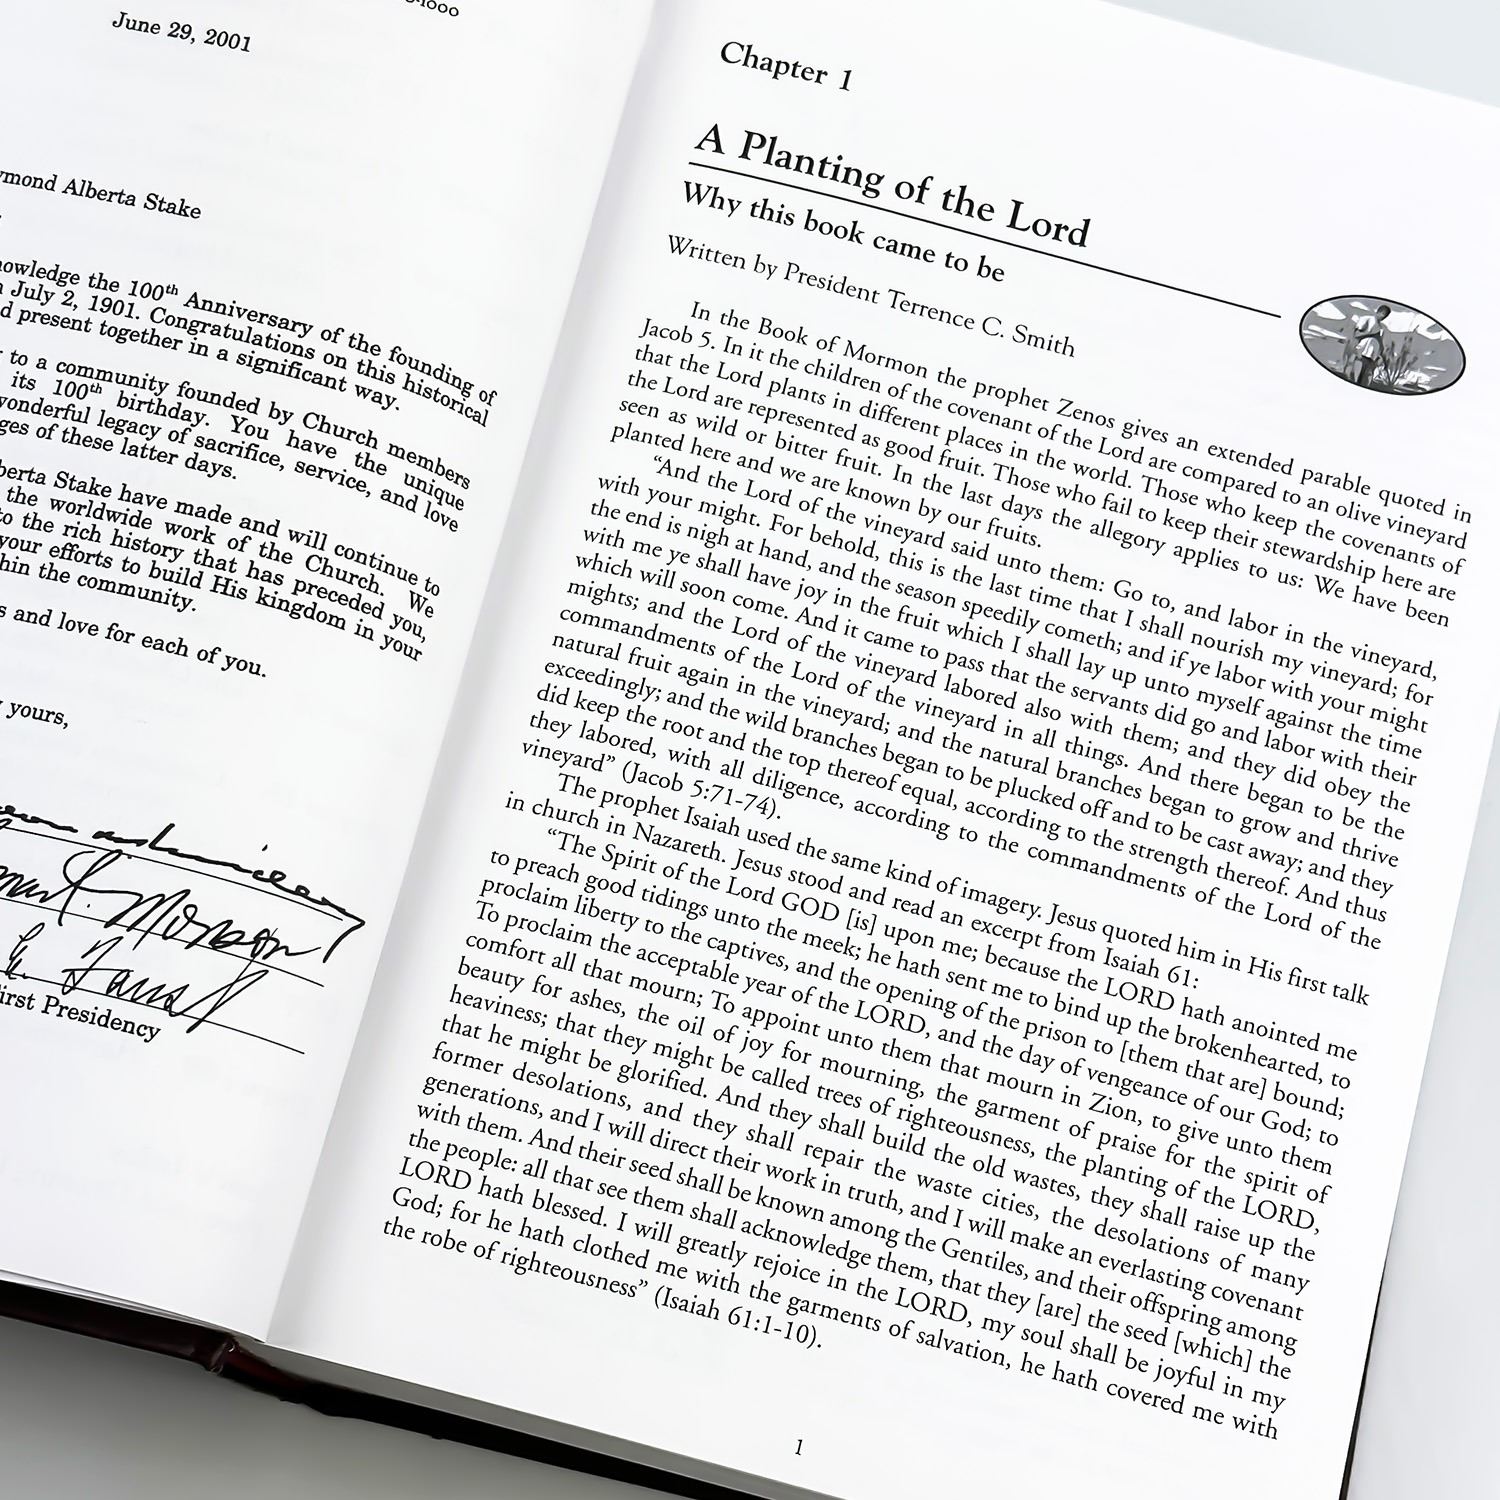 June 29, 2001
Alberta Stake
the 100th Anniversary of the founding of
July 2, 1901. Congratulations on this historical
present together in a significant way.
to a community founded by Church members
its 100th birthday. You have the unique
legacy of sacrifice, service, and love
of these latter days.
Stake have made and will continue to
the worldwide work of the Church. We
to the rich history that has preceded you,
your efforts to build His kingdom in your
the community.
and love for each of you.
yours,
Presidency
Chapter 1
A Planting of the Lord
Why this book came to be
Written by President Terrence C. Smith
In the Book of Mormon the prophet Zenos gives an extended parable quoted in
Jacob 5. In it the children of the covenant of the Lord are compared to an olive vineyard
that the Lord plants in different places in the world. Those who keep the covenants of
the Lord are represented as good fruit. Those who fail to keep their stewardship here are
seen as wild or bitter fruit. In the last days the allegory applies to us: We have been
planted here and we are known by our fruits.
“And the Lord of the vineyard said unto them: Go to, and labor in the vineyard,
with your might. For behold, this is the last time that I shall nourish my vineyard; for
the end is nigh at hand, and the season speedily cometh; and if ye labor with your might
with me ye shall have joy in the fruit which I shall lay up unto myself against the time
which will soon come. And it came to pass that the servants did go and labor with their
mights; and the Lord of the vineyard labored also with them; and they did obey the
commandments of the Lord of the vineyard in all things. And there began to be the
natural fruit again in the vineyard; and the natural branches began to grow and thrive
exceedingly; and the wild branches began to be plucked off and to be cast away; and they
did keep the root and the top thereof equal, according to the strength thereof. And thus
they labored, with all diligence, according to the commandments of the Lord of the
vineyard” (Jacob 5:71-74).
The prophet Isaiah used the same kind of imagery. Jesus quoted him in His first talk
in church in Nazareth. Jesus stood and read an excerpt from Isaiah 61:
“The Spirit of the Lord GOD [is] upon me; because the LORD hath anointed me
to preach good tidings unto the meek; he hath sent me to bind up the brokenhearted, to
proclaim liberty to the captives, and the opening of the prison to [them that are] bound;
To proclaim the acceptable year of the LORD, and the day of vengeance of our God; to
comfort all that mourn; To appoint unto them that mourn in Zion, to give unto them
beauty for ashes, the oil of joy for mourning, the garment of praise for the spirit of
heaviness; that they might be called trees of righteousness, the planting of the LORD,
that he might be glorified. And they shall build the old wastes, they shall raise up the
former desolations, and they shall repair the waste cities, the desolations of many
generations, and I will direct their work in truth, and I will make an everlasting covenant
with them. And their seed shall be known among the Gentiles, and their offspring among
the people: all that see them shall acknowledge them, that they [are] the seed [which] the
LORD hath blessed. I will greatly rejoice in the LORD, my soul shall be joyful in my
God; for he hath clothed me with the garments of salvation, he hath covered me with
the robe of righteousness” (Isaiah 61:1-10).
1